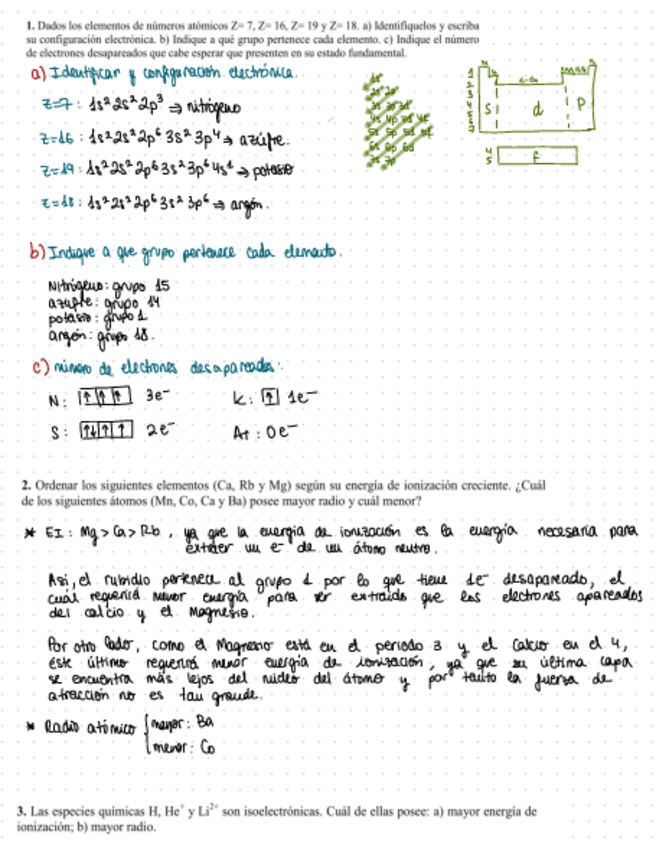 1. Dados los elementos de números atómicos Z= 7, Z= 16, Z= 19 y Z= 18. a) Identifíquelos y escriba
su configuración electrónica. b) Indique a qué grupo pertenece cada elemento. c) Indique el número
de electrones desapareados que cabe esperar que presenten en su estado fundamental.
a) Identificar y configuración electrónica.
Z=7 : 1s² 2s² 2p³ ⇒ nitrógeno
Z=16 : 1s² 2s² 2p⁶ 3s² 3p⁴ ⇒ azufre.
Z=19 : 1s² 2s² 2p⁶ 3s² 3p⁶ 4s¹ ⇒ potasio
Z=18 : 1s² 2s² 2p⁶ 3s² 3p⁶ ⇒ argón.
s d p
4
5 f
b) Indique a que grupo pertenece cada elemento.
Nitrógeno: grupo 15
azufre: grupo 14
potasio: grupo 1
argón: grupo 18.
c) número de electrones desapareados:
N: ↑ ↑ ↑ 3e⁻ K: ↑ 1e⁻
S: ↑↓ ↑ ↑ 2e⁻ Ar: 0e⁻
2. Ordenar los siguientes elementos (Ca, Rb y Mg) según su energía de ionización creciente. ¿Cuál
de los siguientes átomos (Mn, Co, Ca y Ba) posee mayor radio y cuál menor?
* EI: Mg > Ca > Rb, ya que la energía de ionización es la energía necesaria para
extraer un e⁻ de un átomo neutro.
Así, el rubidio pertenece al grupo 1 por lo que tiene 1e⁻ desapareado, el
cual requerirá menor energía para ser extraído que los electrones apareados
del calcio y el magnesio.
Por otro lado, como el Magnesio está en el periodo 3 y el Calcio en el 4,
este último requerirá menor energía de ionización, ya que su última capa
se encuentra más lejos del núcleo del átomo y por tanto la fuerza de
atracción no es tan grande.
* Radio atómico { mayor: Ba
menor: Co
3. Las especies químicas H, He⁺ y Li²⁺ son isoelectrónicas. Cuál de ellas posee: a) mayor energía de
ionización; b) mayor radio.